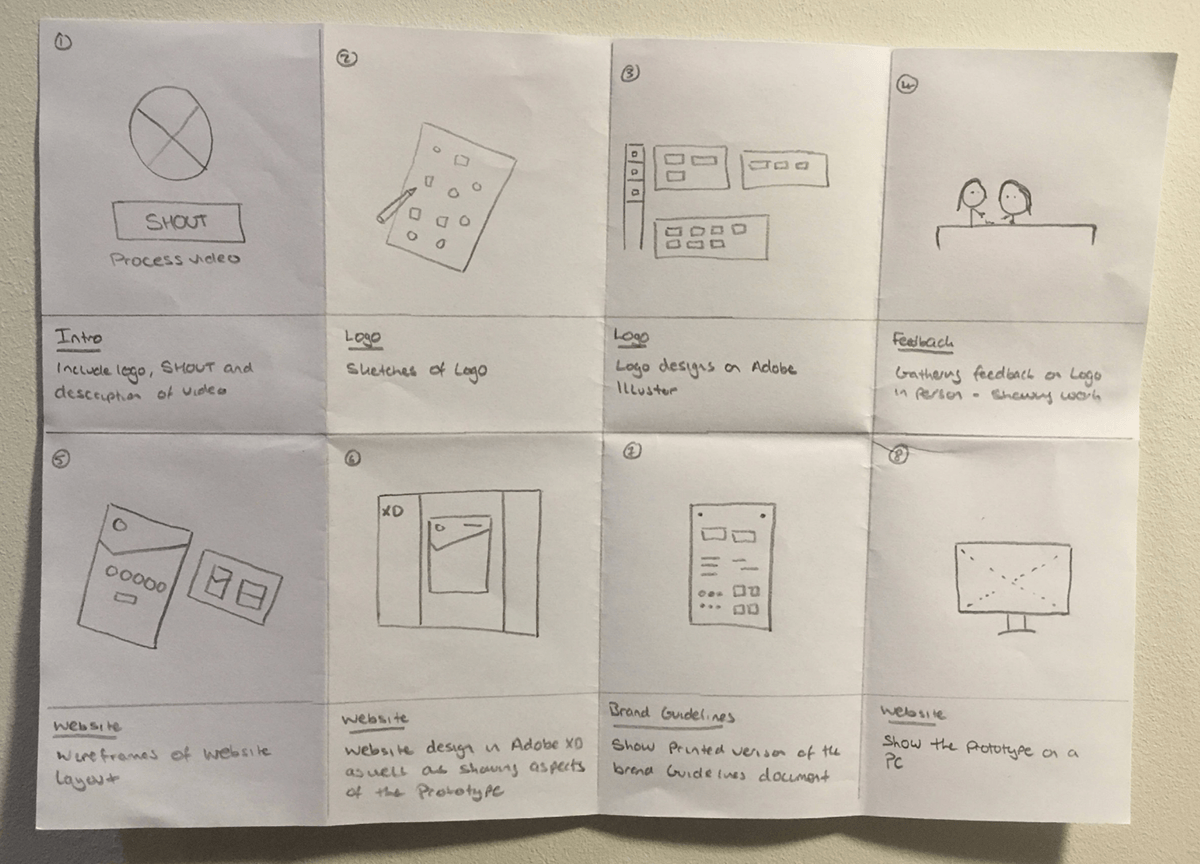 ①
SHOUT
Process video
Intro
Include logo, SHOUT and
description of video
②
Logo
Sketches of Logo
③
Logo
Logo designs on Adobe
Illuster
④
Feedback
Gathering feedback on Logo
in person - showing work
⑤
Website
Wireframes of website
Layout
⑥
XD
Website
Website design in Adobe XD
aswell as showing aspects
of the Prototype
⑦
Brand Guidelines
Show Printed version of the
brand Guidelines document
⑧
Website
Show the prototype on a
PC